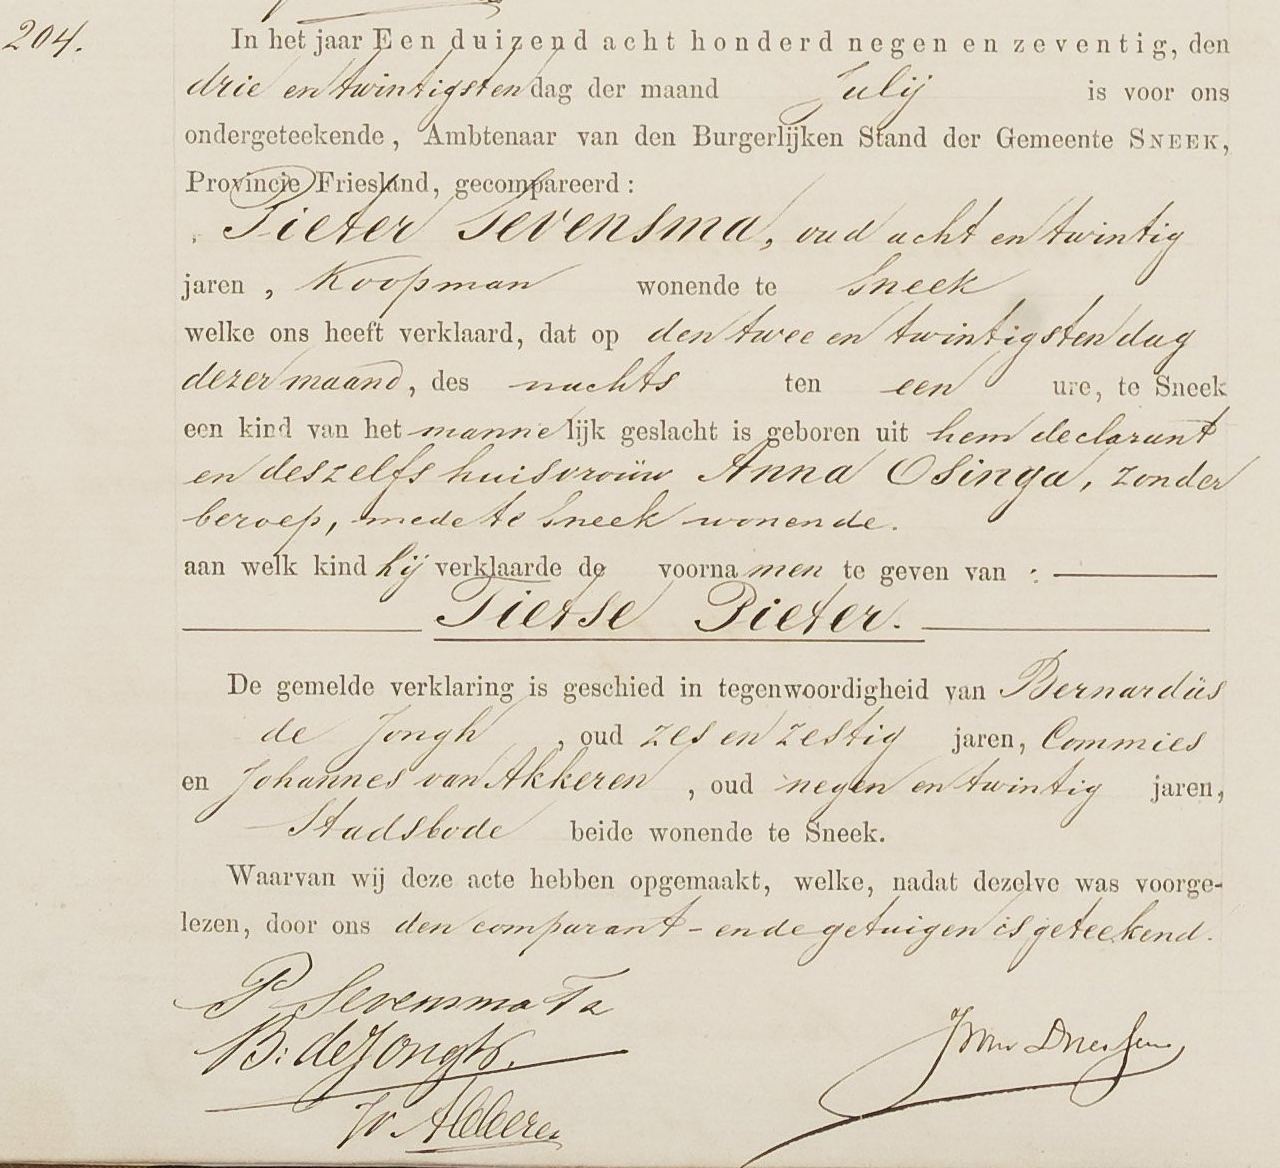 204.
In het jaar Een duizend acht honderd negen en zeventig, den
drie en twintigsten dag der maand Julij is voor ons
ondergeteekende, Ambtenaar van den Burgerlijken Stand der Gemeente SNEEK,
Provincie Friesland, gecompareerd:
Pieter Sevensma, oud acht en twintig
jaren, Koopman wonende te Sneek
welke ons heeft verklaard, dat op den twee en twintigsten dag
dezer maand, des nachts ten een ure, te Sneek
een kind van het mannelijk geslacht is geboren uit hem declarant
en deszelfs huisvrouw Anna Osinga, zonder
beroep, mede te Sneek wonende.
aan welk kind hij verklaarde de voornamen te geven van :
Tietse Pieter.
De gemelde verklaring is geschied in tegenwoordigheid van Bernardus
de Jongh, oud zes en zestig jaren, Commies
en Johannes van Akkeren, oud negen en twintig jaren,
Stadsbode beide wonende te Sneek.
Waarvan wij deze acte hebben opgemaakt, welke, nadat dezelve was voorge-
lezen, door ons den comparant - en de getuigen is geteekend.
P Sevensma Tz
B: de Jongh.
Jv Akkeren